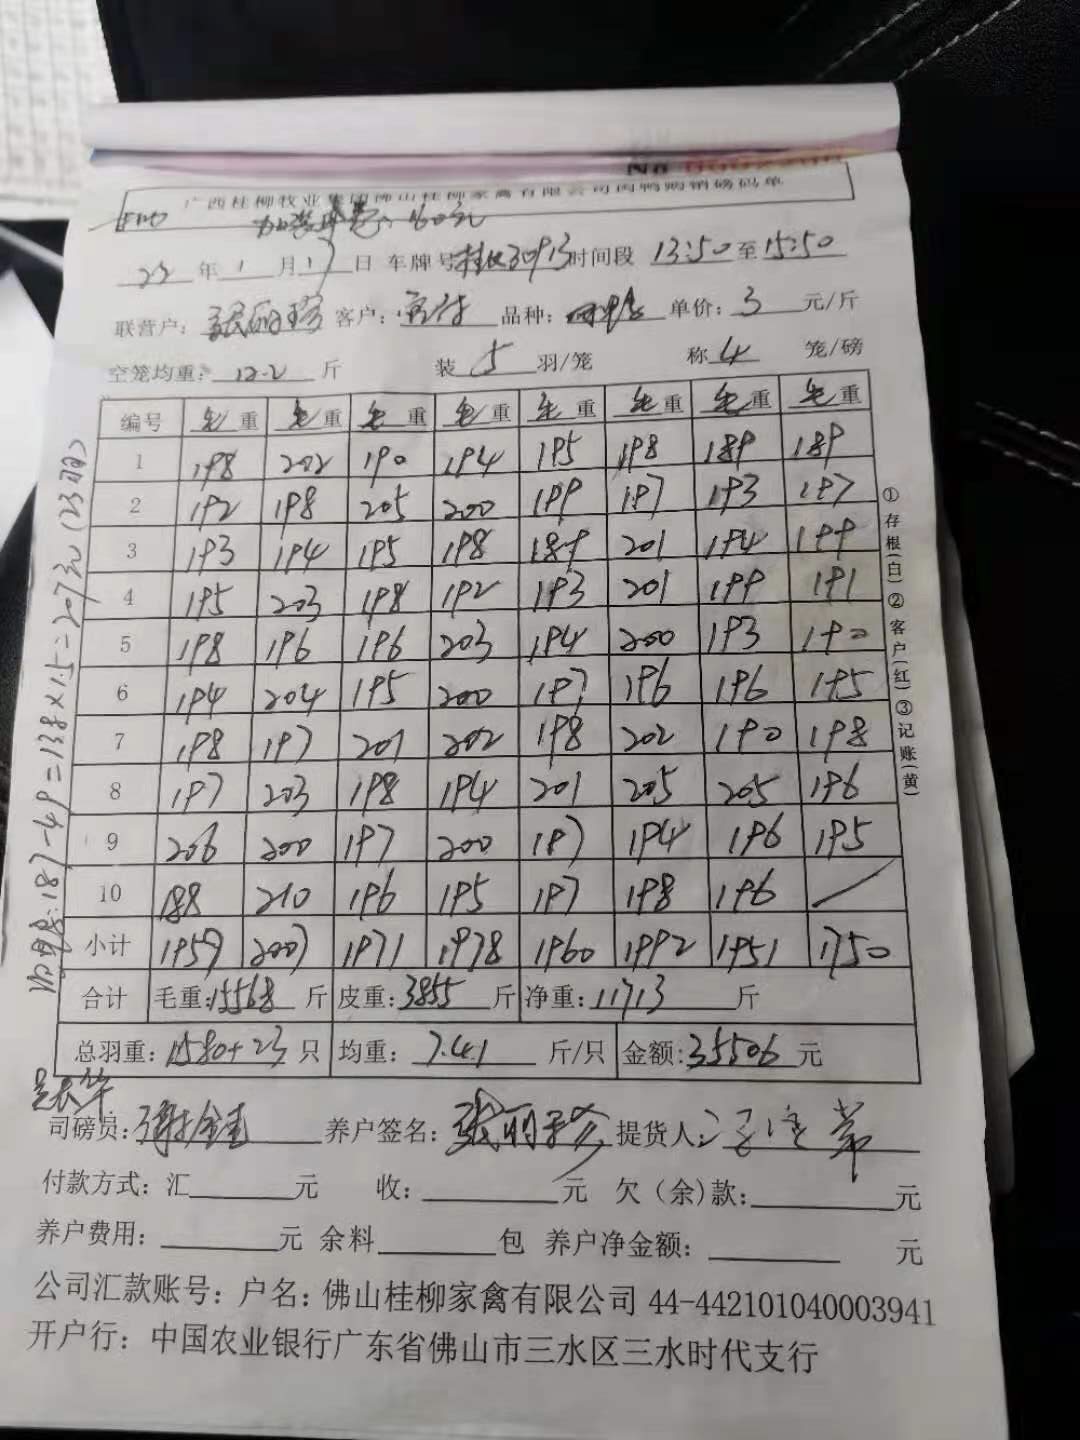 广西桂柳牧业集团佛山桂柳家禽有限公司肉鸭购销磅码单
22 年 1 月 17 日 车牌号 30913 时间段 13:50 至 15:50
联营户: 张丽珍 客户: 品种: 单价: 3 元/斤
空笼均重: 12.2 斤 装 5 羽/笼 称 4 笼/磅
编号 毛重 毛重 毛重 毛重 毛重 毛重 毛重 毛重
1 198 202 190 194 195 198 189 189
2 192 198 205 200 199 197 193 197
3 193 194 195 198 189 201 194 199
4 195 203 198 192 193 201 199 191
5 198 196 196 203 194 200 193 190
6 194 204 195 200 197 196 196 195
7 198 197 201 202 198 202 190 198
8 197 203 198 194 201 205 205 196
9 206 200 197 200 197 194 196 195
10 188 210 196 195 197 198 196 /
小计 1959 2007 1971 1978 1960 1992 1951 1750
合计 毛重: 15568 斤 皮重: 3855 斤 净重: 11713 斤
总羽重: 1580+23 只 均重: 7.41 斤/只 金额: 35506 元
司磅员: 养户签名: 张丽珍 提货人:
付款方式: 汇 元 收: 元 欠(余)款: 元
养户费用: 元 余料 包 养户净金额: 元
公司汇款账号: 户名: 佛山桂柳家禽有限公司 44-442101040003941
开户行: 中国农业银行广东省佛山市三水区三水时代支行
①存根(白)②客户(红)③记账(黄)
187-49=138×1.5=207元(23只)